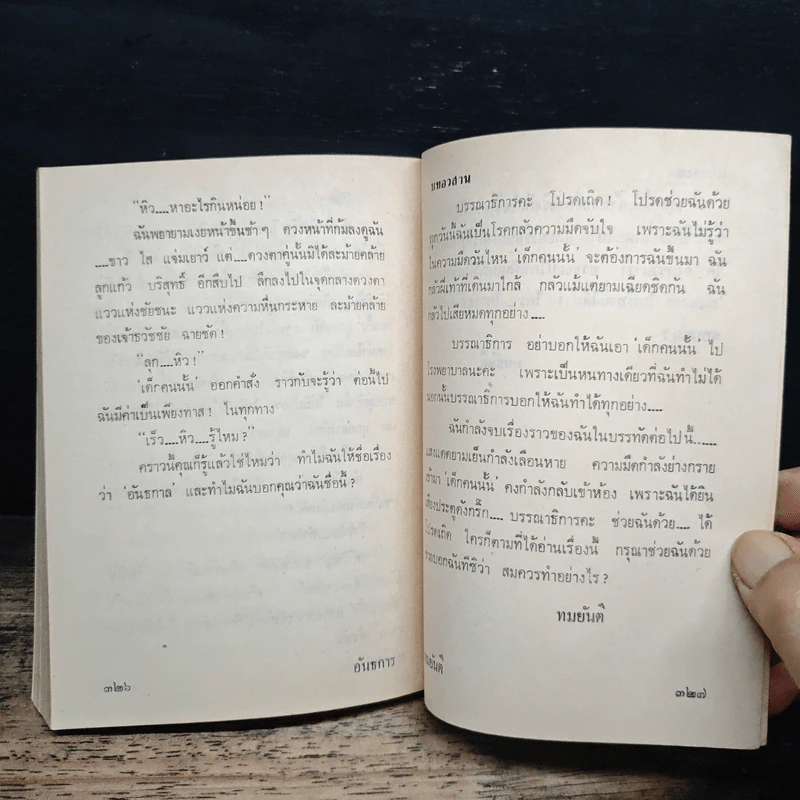 “หิว....หาอะไรกินหน่อย !”
ฉันพยายามเงยหน้าขึ้นช้า ๆ ดวงหน้าที่ก้มลงดูฉัน
....ขาว ใส แจ่มเยาว์ แต่....ดวงตาคู่นั้นมิได้ละม้ายคล้าย
ลูกแก้ว บริสุทธิ์ อีกสืบไป ลึกลงไปในจุดกลางดวงตา
แววแห่งชัยชนะ แววแห่งความหื่นกระหาย ละม้ายคล้าย
ของเจ้าธวัชชัย ฉายชัด !
“ลุก....หิว !”
‘เด็กคนนั้น’ ออกคำสั่ง ราวกับจะรู้ว่า ต่อนี้ไป
ฉันมีค่าเป็นเพียงทาส ! ในทุกทาง
“เร็ว....หิว....รู้ไหม ?”
คราวนี้คุณก็รู้แล้วใช่ไหมว่า ทำไมฉันให้ชื่อเรื่อง
ว่า ‘อันธกาล’ และทำไมฉันบอกคุณว่าฉันชื่อนี้ ?
อันธการ
๓๒๖
บทอวสาน
บรรณาธิการคะ โปรดเถิด ! โปรดช่วยฉันด้วย
ทุกวันนี้ฉันเป็นโรคกลัวความมืดจับใจ เพราะฉันไม่รู้ว่า
ในความมืดวันไหน ‘เด็กคนนั้น’ จะต้องการฉันขึ้นมา ฉัน
กลัวฝีเท้าที่เดินมาใกล้ กลัวแม้แต่ยามเฉียดชิดกัน ฉัน
กลัวไปเสียหมดทุกอย่าง....
บรรณาธิการ อย่าบอกให้ฉันเอา ‘เด็กคนนั้น’ ไป
โรงพยาบาลนะคะ เพราะเป็นหนทางเดียวที่ฉันทำไม่ได้
นอกนั้นบรรณาธิการบอกให้ฉันทำได้ทุกอย่าง....
ฉันกำลังจบเรื่องราวของฉันในบรรทัดต่อไปนี้......
แสงแดดยามเย็นกำลังเลือนหาย ความมืดกำลังย่างกราย
เข้ามา ‘เด็กคนนั้น’ คงกำลังกลับเข้าห้อง เพราะฉันได้ยิน
เสียงประตูดังกริ๊ก.... บรรณาธิการคะ ช่วยฉันด้วย.... ได้
โปรดเถิด ใครก็ตามที่ได้อ่านเรื่องนี้ กรุณาช่วยฉันด้วย
บอกฉันทีซิว่า สมควรทำอย่างไร ?
ทมยันตี
ทมยันตี
๓๒๗